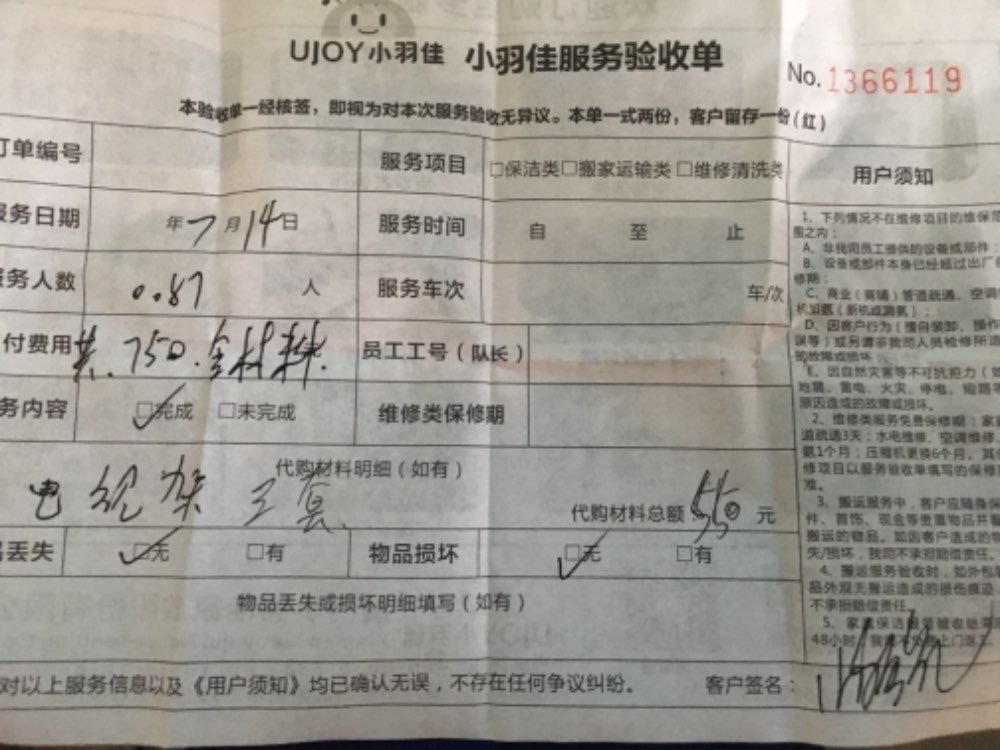 UJOY小羽佳 小羽佳服务验收单
No. 1366119
本验收单一经核签，即视为对本次服务验收无异议。本单一式两份，客户留存一份（红）
订单编号 服务项目 □保洁类□搬家运输类□维修清洗类
服务日期 年7月14日 服务时间 自 至 止
服务人数 0.87 人 服务车次 车/次
付费用 共.750.含材料. 员工工号（队长）
务内容 ☑完成 □未完成 维修类保修期
代购材料明细（如有）
电视架 代购材料总额 550 元
丢失 ☑无 □有 物品损坏 ☑无 □有
物品丢失或损坏明细填写（如有）
对以上服务信息以及《用户须知》均已确认无误，不存在任何争议纠纷。 客户签名：
用户须知
1、下列情况不在维修项目的维保范
围之内：
A、非我司员工提供的设备或部件
B、设备或部件本身已经超过出厂
修期；
C、商业（商铺）管道疏通、空调
机加氨（新机或漏氨）；
D、因客户行为（擅自装卸、操作
误等）或另请非我司人员检修所造
的故障或损坏
E、因自然灾害等不可抗拒力（如
地震、雷电、火灾、停电、短路
原因造成的故障或损坏。
2、维修类服务免费保修期：家
道疏通3天；水电维修、空调维修
氨1个月；压缩机更换6个月。其
修项目以服务验收单填写的保修
准。
3、搬运服务中，客户应随身保
件、首饰、现金等贵重物品并
搬运的物品。如因客户造成的物
失/损坏，我司不承担赔偿责任。
4、搬运服务验收时，如外包装
品外观无搬运造成的损伤痕迹
不承担赔偿责任。
5、家庭保洁服务验收结束
48小时